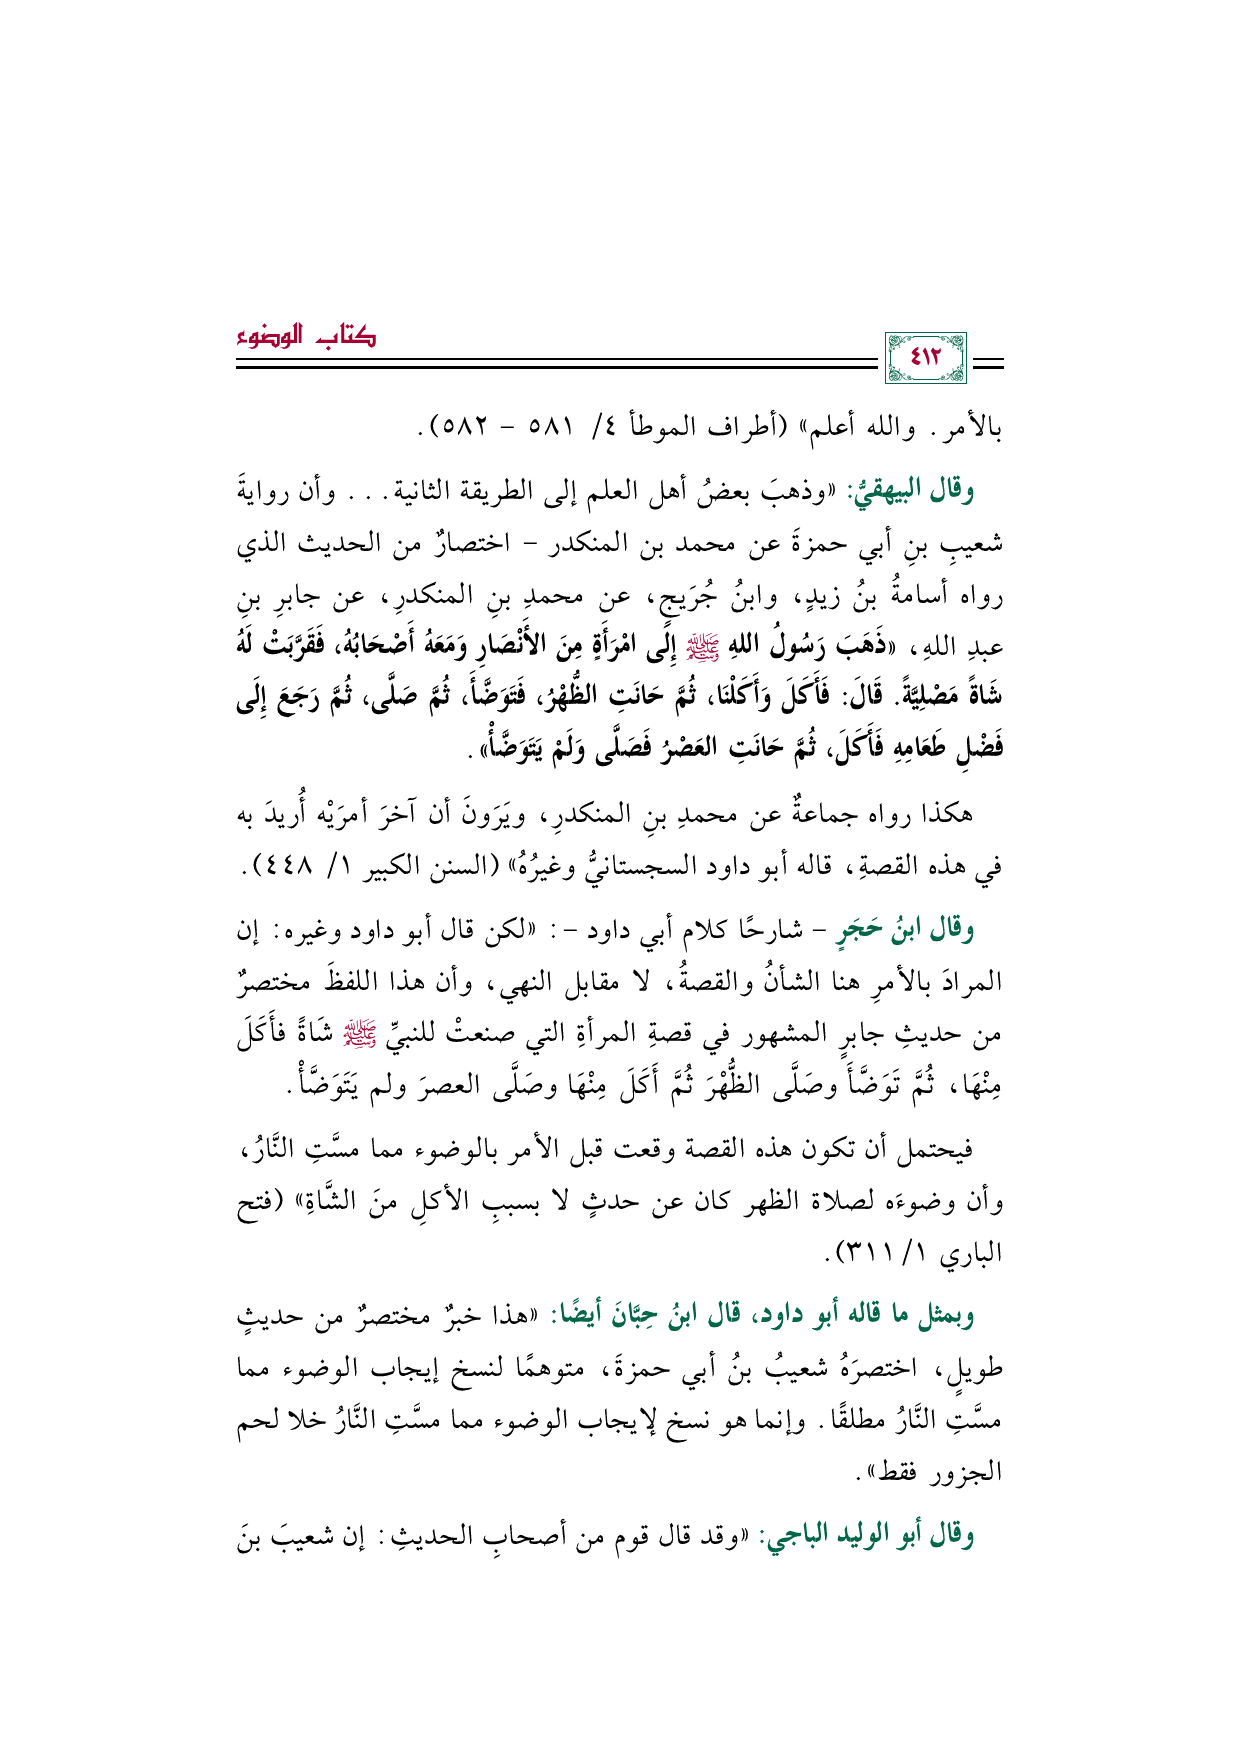 كتاب الوضوء
٤١٢
بالأمر. والله أعلم» (أطراف الموطأ ٤/ ٥٨١ - ٥٨٢).
وقال البيهقيُّ: «وذهبَ بعضُ أهل العلم إلى الطريقة الثانية... وأن روايةَ
شعيبِ بنِ أبي حمزةَ عن محمد بن المنكدر - اختصارٌ من الحديث الذي
رواه أسامةُ بنُ زيدٍ، وابنُ جُرَيجٍ، عن محمدِ بنِ المنكدرِ، عن جابرِ بنِ
عبدِ اللهِ، «ذَهَبَ رَسُولُ اللهِ ﷺ إِلَى امْرَأَةٍ مِنَ الأَنْصَارِ وَمَعَهُ أَصْحَابُهُ، فَقَرَّبَتْ لَهُ
شَاةً مَصْلِيَّةً. قَالَ: فَأَكَلَ وَأَكَلْنَا، ثُمَّ حَانَتِ الظُّهْرُ، فَتَوَضَّأَ، ثُمَّ صَلَّى، ثُمَّ رَجَعَ إِلَى
فَضْلِ طَعَامِهِ فَأَكَلَ، ثُمَّ حَانَتِ العَصْرُ فَصَلَّى وَلَمْ يَتَوَضَّأْ».
هكذا رواه جماعةٌ عن محمدِ بنِ المنكدرِ، ويَرَونَ أن آخرَ أمرَيْه أُريدَ به
في هذه القصةِ، قاله أبو داود السجستانيُّ وغيرُهُ» (السنن الكبير ١/ ٤٤٨).
وقال ابنُ حَجَرٍ - شارحًا كلام أبي داود -: «لكن قال أبو داود وغيره: إن
المرادَ بالأمرِ هنا الشأنُ والقصةُ، لا مقابل النهي، وأن هذا اللفظَ مختصرٌ
من حديثِ جابرٍ المشهور في قصةِ المرأةِ التي صنعتْ للنبيِّ ﷺ شَاةً فأَكَلَ
مِنْهَا، ثُمَّ تَوَضَّأَ وصَلَّى الظُّهْرَ ثُمَّ أَكَلَ مِنْهَا وصَلَّى العصرَ ولم يَتَوَضَّأْ.
فيحتمل أن تكون هذه القصة وقعت قبل الأمر بالوضوء مما مسَّتِ النَّارُ،
وأن وضوءَه لصلاة الظهر كان عن حدثٍ لا بسببِ الأكلِ منَ الشَّاةِ» (فتح
الباري ١/ ٣١١).
وبمثل ما قاله أبو داود، قال ابنُ حِبَّانَ أيضًا: «هذا خبرٌ مختصرٌ من حديثٍ
طويلٍ، اختصرَهُ شعيبُ بنُ أبي حمزةَ، متوهمًا لنسخ إيجاب الوضوء مما
مسَّتِ النَّارُ مطلقًا. وإنما هو نسخ لإيجاب الوضوء مما مسَّتِ النَّارُ خلا لحم
الجزور فقط».
وقال أبو الوليد الباجي: «وقد قال قوم من أصحابِ الحديثِ: إن شعيبَ بنَ